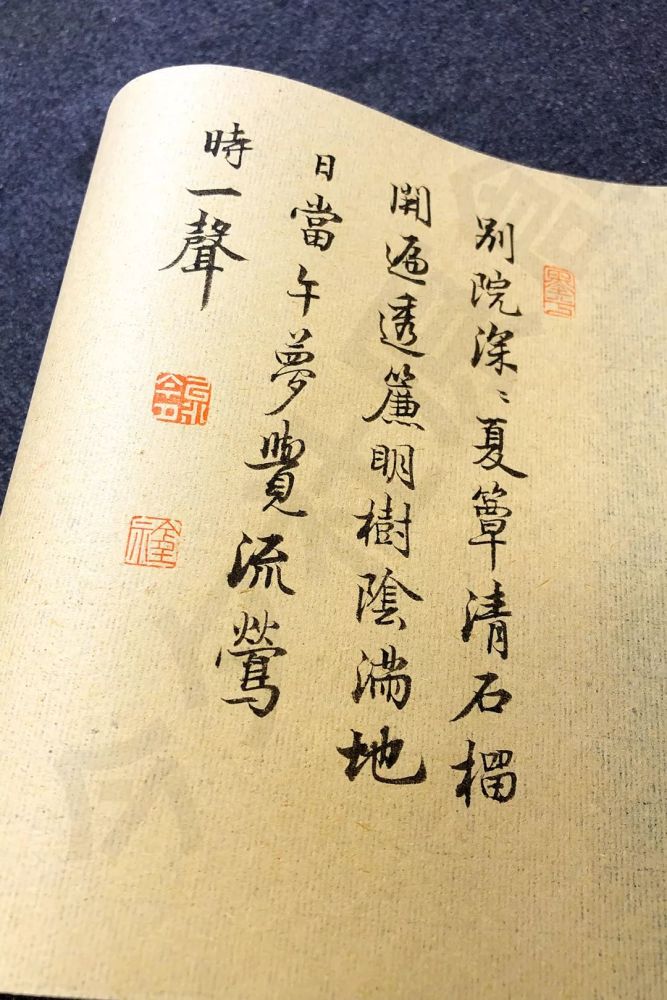 別院深〻夏簟清石榴
開遍透簾明樹陰满地
日當午夢覺流鶯
時一聲